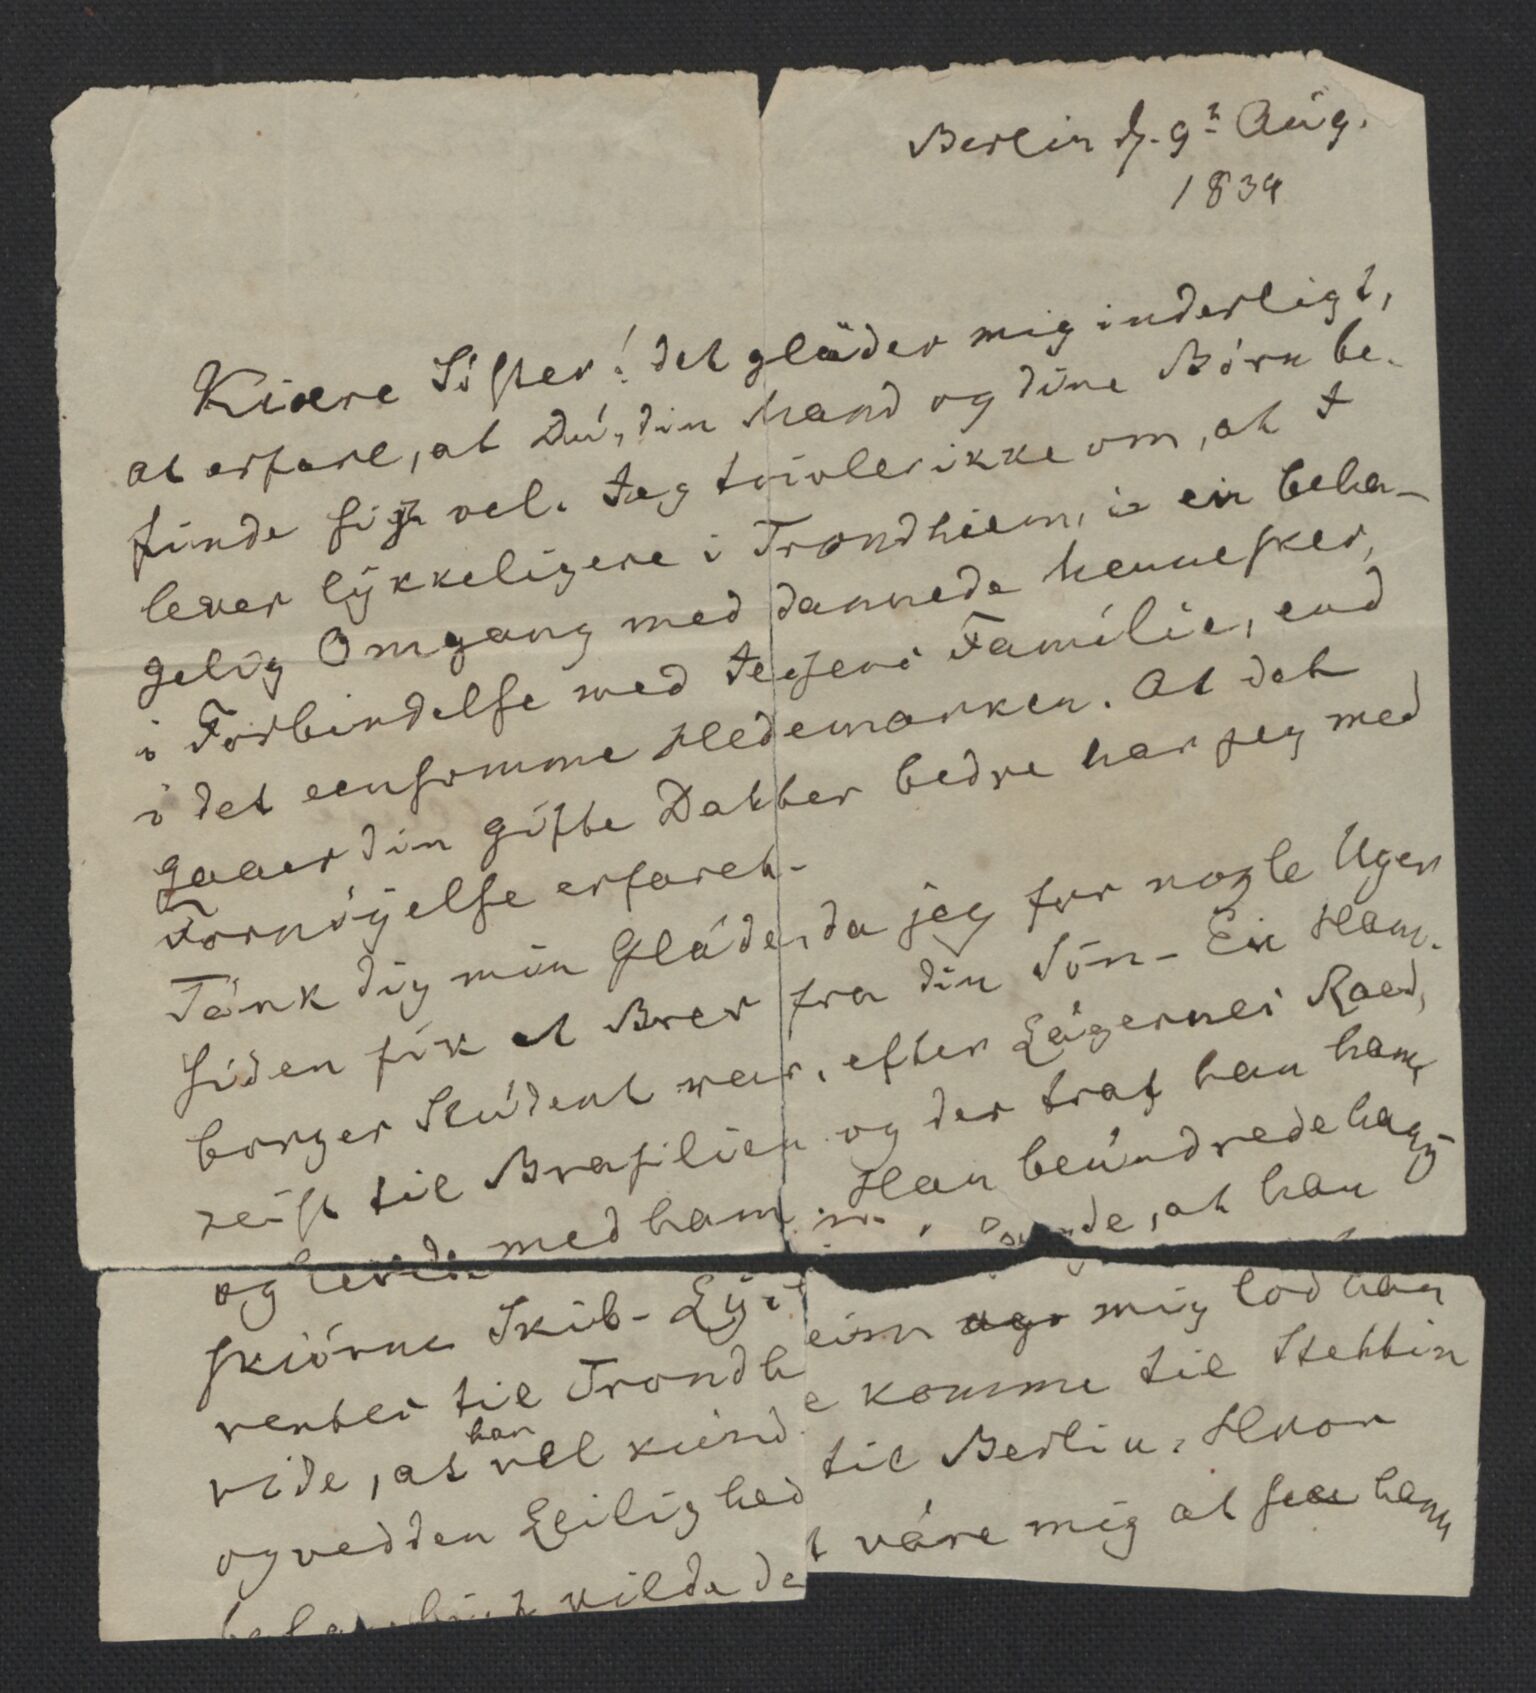 Berlin d. 9n Aug.
1834
Kiære Söster! det gläder mig inderligt,
at erfare, at Du, din Mand og dine Börn be-
finde sig vel. Jeg tvivler ikke om, at I
lever lykkeligere i Trondhiem, i en beha-
gelig Omgang med dannede Mennesker,
i Forbindelse med Familie, end
i det eensomme Hedemarken. At det
gaaer din gifte Dotter bedre har jeg med
Fornöyelse erfaret.
Tänk dig min Gläde, da jeg for nogle Uger
siden fik et Brev fra din Sön - En Ham-
borger Student var, efter Lägernes Raad,
reist til Brasilien og der traf han ham,
og levede med ham. Han beundrede hans
skiönne Skib - kunde, at han
venter til Trondheim mig lod han
vide, at han vel kunde komme til Stettin
og ved den Leilighed til Berlin. Hvor
vilde det väre mig at see ham